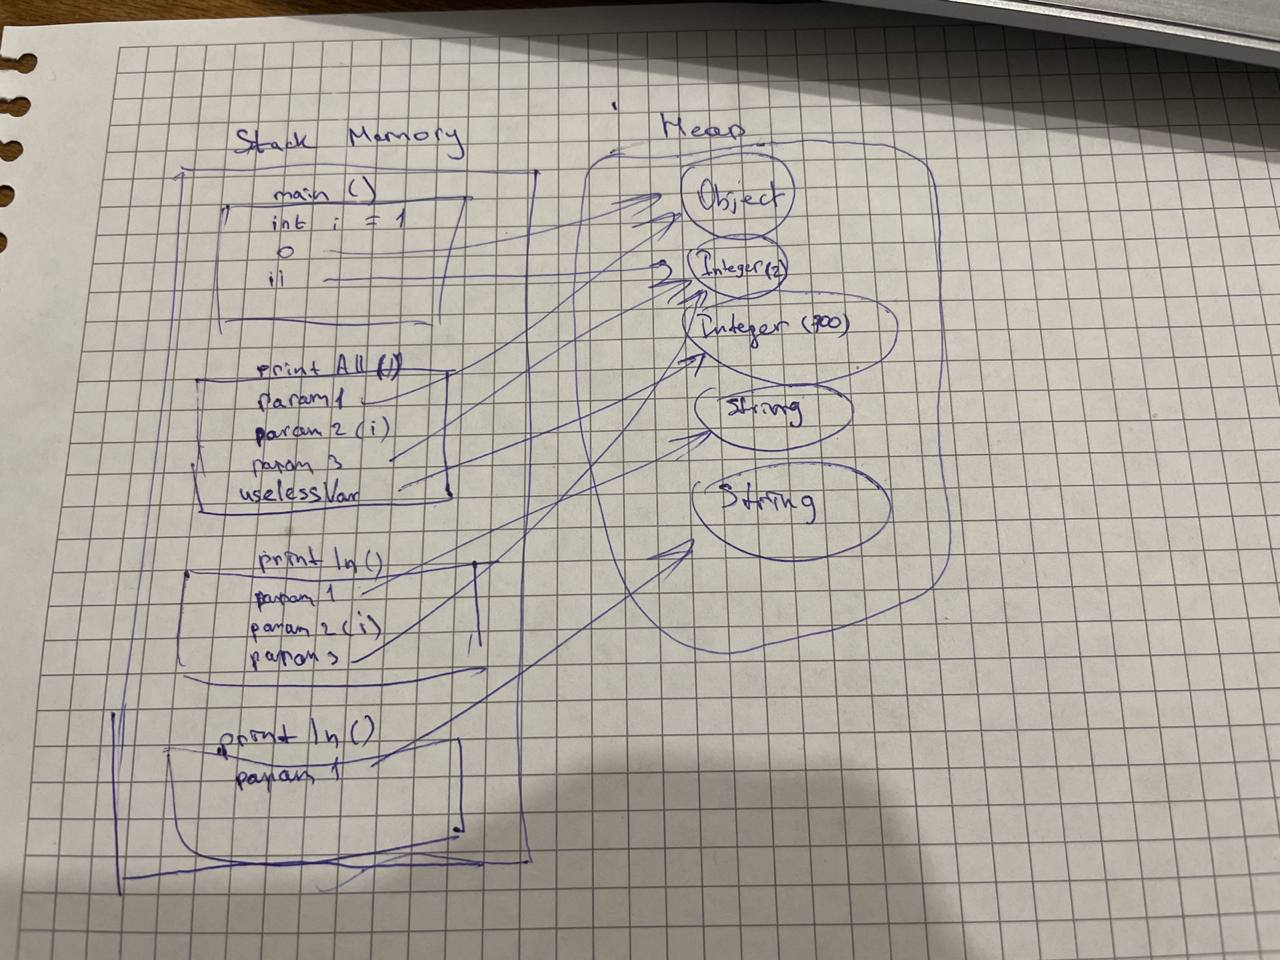 Stack Memory
main ()
int i = 1
o
ii
print All ()
param 1
param 2 (i)
param 3
uselessVar
print ln ()
param 1
param 2 (i)
param 3
print ln ()
param 1
Heap
Object
Integer (2)
Integer (700)
String
String